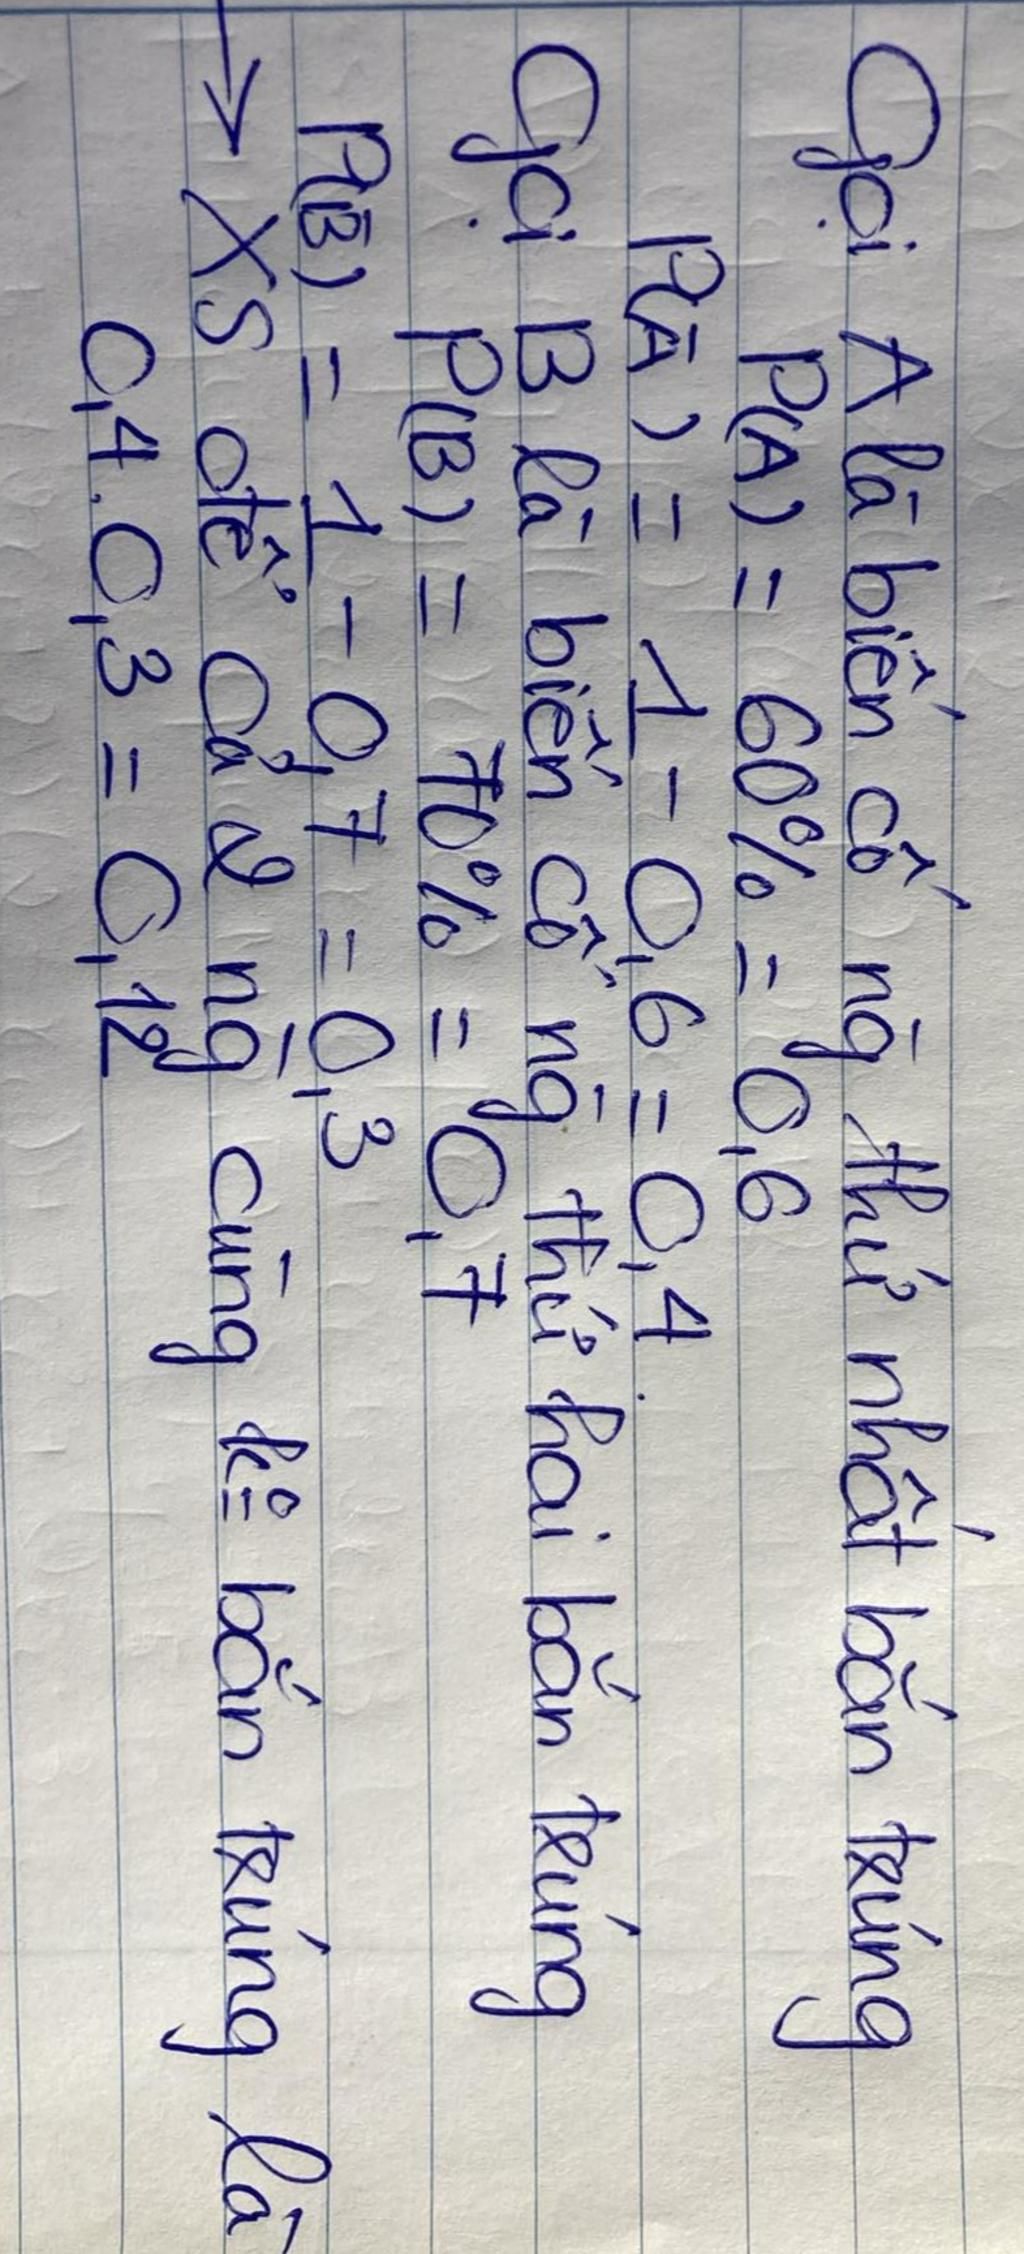 Gọi A là biến cố ng̅ thứ nhất bắn trúng
P(A) = 60% = 0,6
P(A̅) = 1 - 0,6 = 0,4.
Gọi B là biến cố ng̅ thứ hai bắn trúng
P(B) = 70% = 0,7
P(B̅) = 1 - 0,7 = 0,3
→ XS để cả 2 ng̅ cùng k° bắn trúng là
0,4.0,3 = 0,12